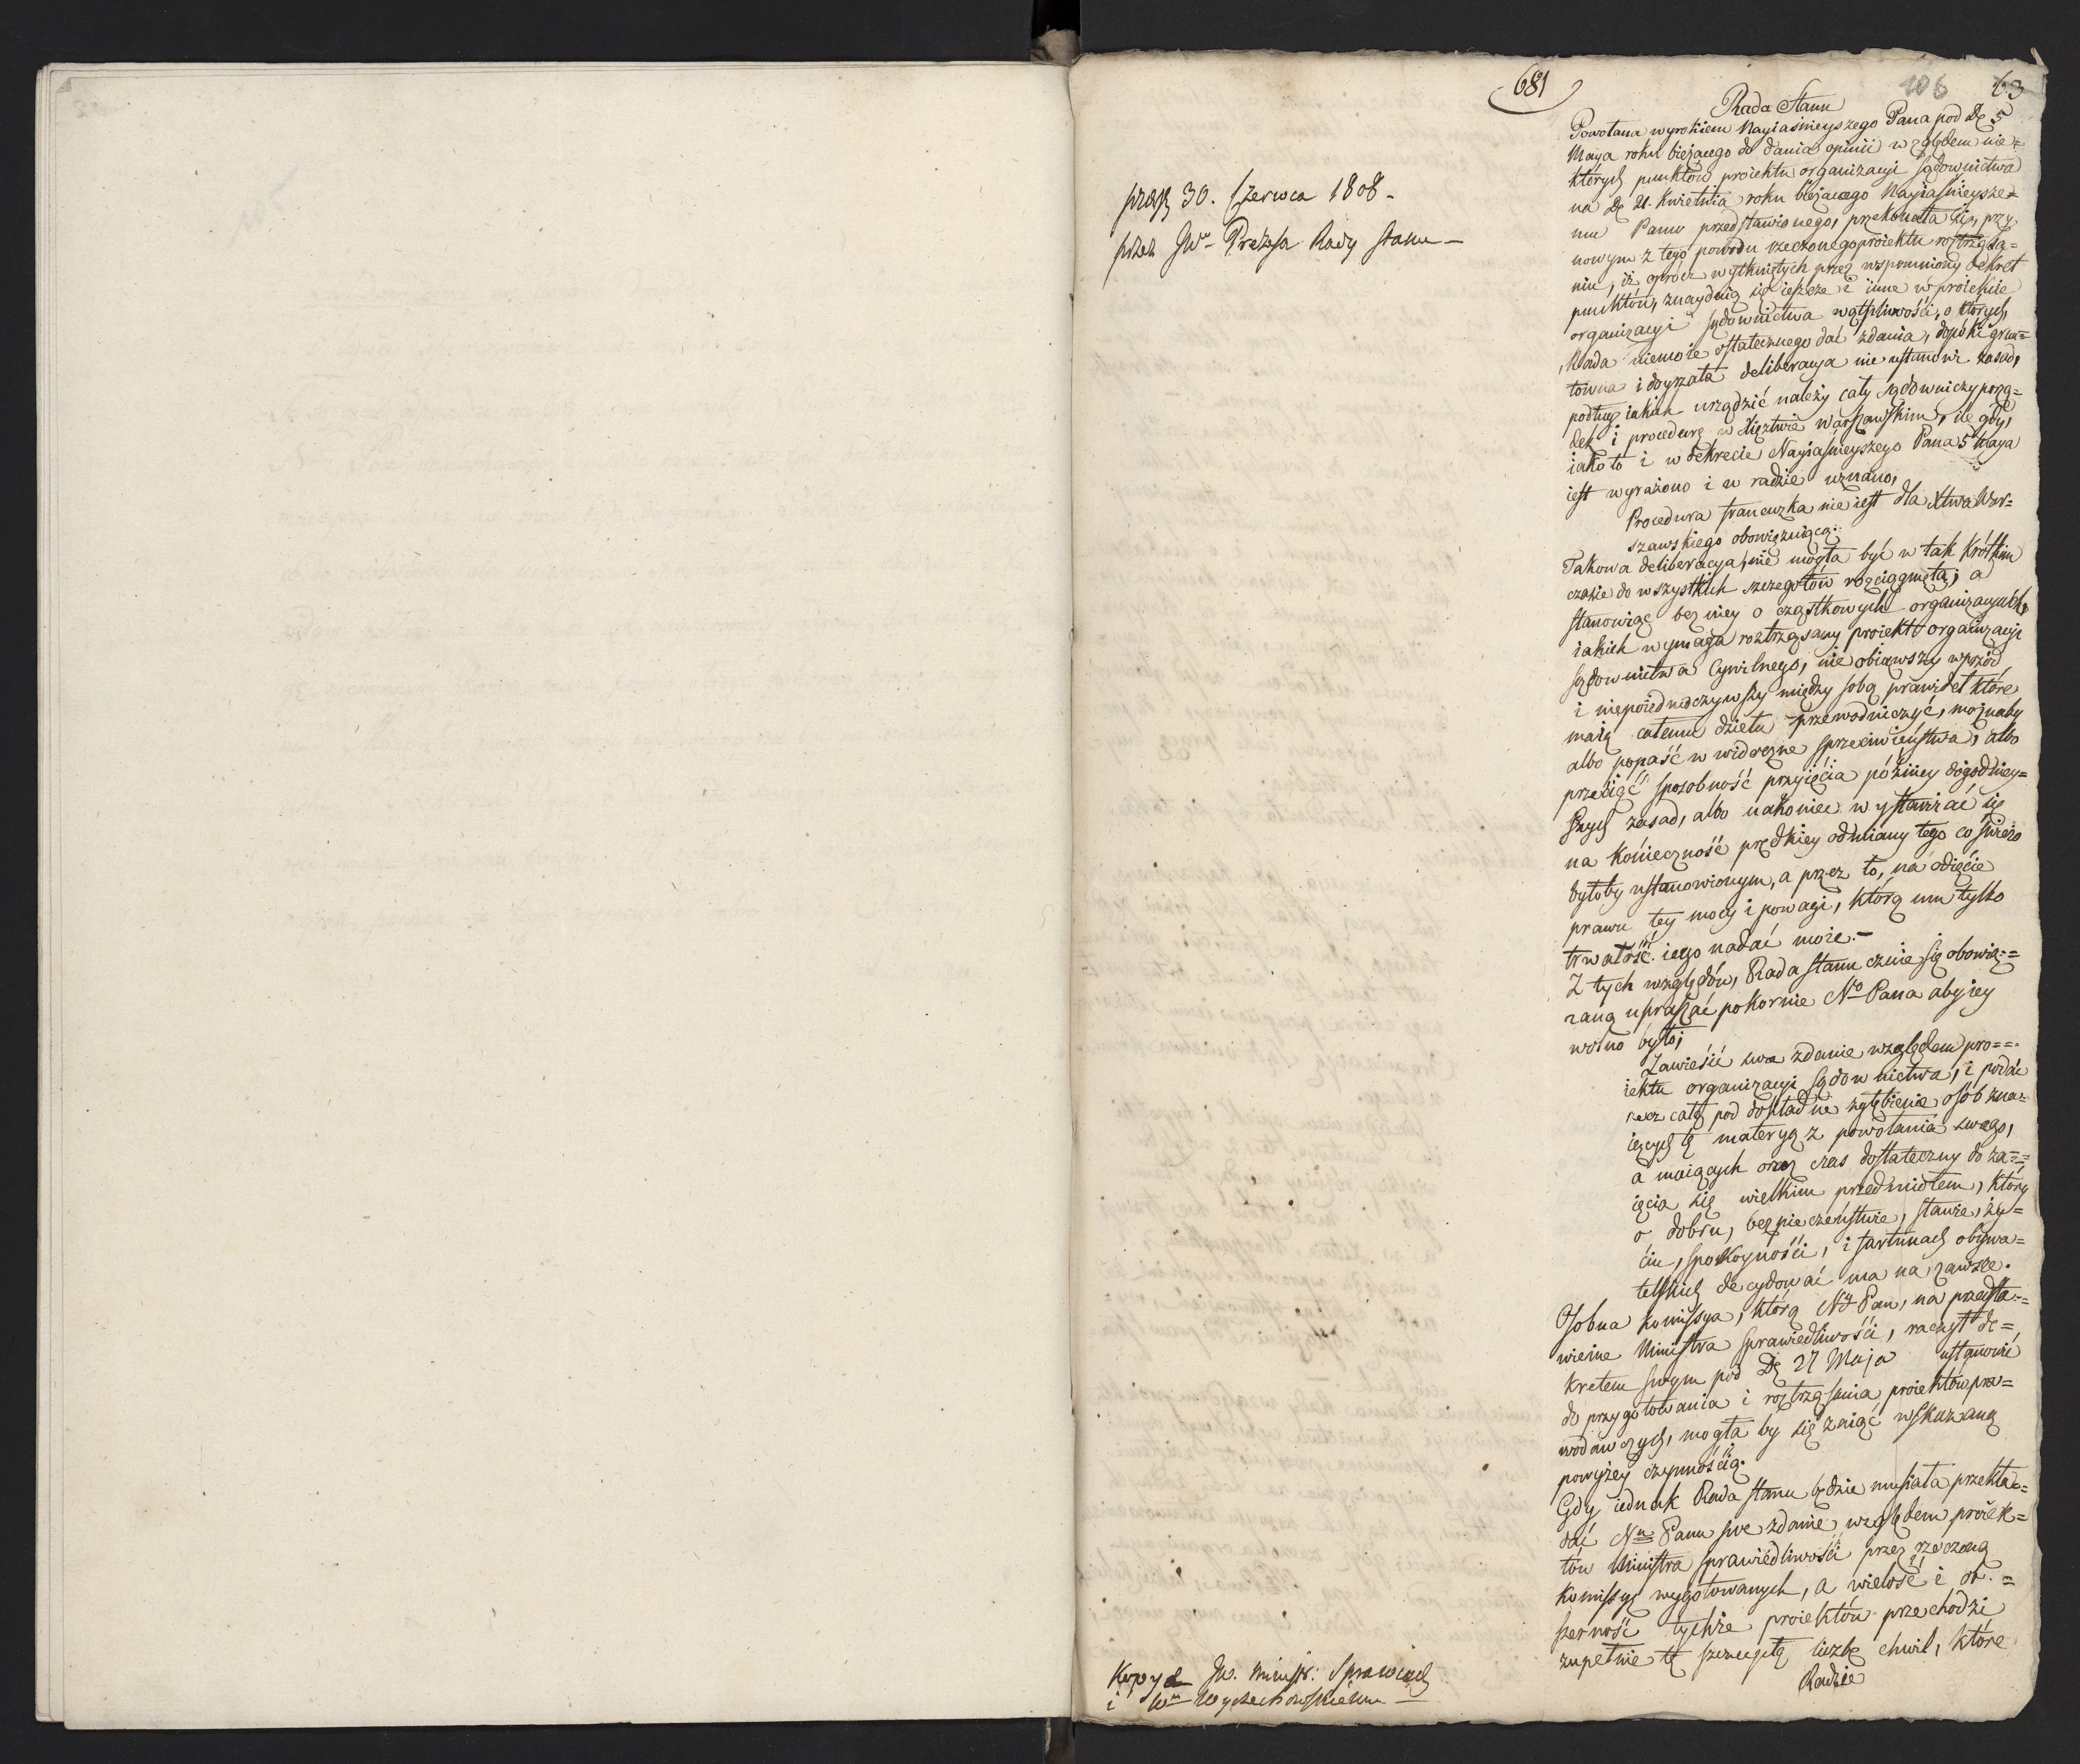 681
106
63
prez 30. Czerwca 1808 -
przez JW. Prezesa Rady Stanu -
Rada Stanu
Powołana wyrokiem Nayiaśnieyszego Pana pod D. 5
Maya roku bieżącego do dania opinii względem nie=
których punktów proiektu organizacyi sądownictwa
na D. 21. Kwietnia roku bieżącego Nayiaśnieysze=
mu Panu przedstawionego, przekonała się, przy
nowym z tego powodu rzeczonego proiektu roztrząsa=
niu, iż oprócz wytkniętych przez wspomniony dekret
punktów, znayduią się ieszcze i inne w proiekcie
organizacyi sądownictwa wątpliwości, o których,
Rada niemoże ostatecznego dać zdania, dopóki grun=
towna i doyrzała deliberacya nie ustanowi zasad,
podług iakich urządzić należy cały sądowniczy porzą=
dek i procedurę w Xięztwie Warszawskim, ile gdy,
iako to i w dekrecie Nayiaśnieyszego Pana 5 Maya
iest wyrażono i w radzie uznano,
Procedura francuzka nie iest dla Xtwa War=
szawskiego obowiązuiącą.
Takowa deliberacya, nie mogła być w tak krótkim
czasie do wszystkich szczegółów rozciągniętą; a
stanowiąc bez niey o cząstkowych organizacyach,
iakich wymaga roztrząsany proiekt organizacyi
sądownictwa Cywilnego, nie obiąwszy wprzód
i niepoiednoczywszy między sobą prawideł które
maią całemu dziełu przewodniczyć, możnaby
albo popaść w widoczne sprzeciwieństwa, albo
przeciąć sposobność przyięcia późniey dogodniey=
szych zasad, albo nakoniec wystawiać się
na konieczność prędkiey odmiany tego co świeżo
byłoby ustanowionym, a przez to, na odięcie
prawu tey mocy i powagi, którą mu tylko
trwałość iego nadać może. -
Z tych względów, Rada Stanu czuie się obowią=
zaną upraszać pokornie No Pana aby iey
wolno było;
Zawiesić swe zdanie względem pro=
iektu organizacyi sądownictwa, i podać
rzecz całą pod dokładne zgłębienie osób zna=
iących tę materyą z powołania swego,
a maiących oraz czas dostateczny do za=
ięcia się wielkim przedmiotem, który
o dobru, bezpieczeństwie, stanie, ży=
ciu, spokoyności, i fortunach obywa=
telskich decydować ma na zawsze.
Osobna komissya, którą Ny Pan, na przedsta=
wienie Ministra Sprawiedliwości, raczył de=
kretem swym pod D. 27 Maja ustanowić
do przygotowania i roztrząśnienia proiektów pra=
wodawczych, mogła by się zaiąć wskazaną
powyżey czynnością.
Gdy iednak Rada Stanu będzie musiała przekła=
dać Nu Panu swe zdanie względem proiek=
tów Ministra sprawiedliwości przez rzeczoną
Komissyą wygotowanych, a wielość i ob=
szerność tychże proiektów przechodzi
zupełnie tę szczupłą liczbę chwil, które
Radzie
Kopya JW. Ministr: Sprawied
i Wu Wyczechowskiemu